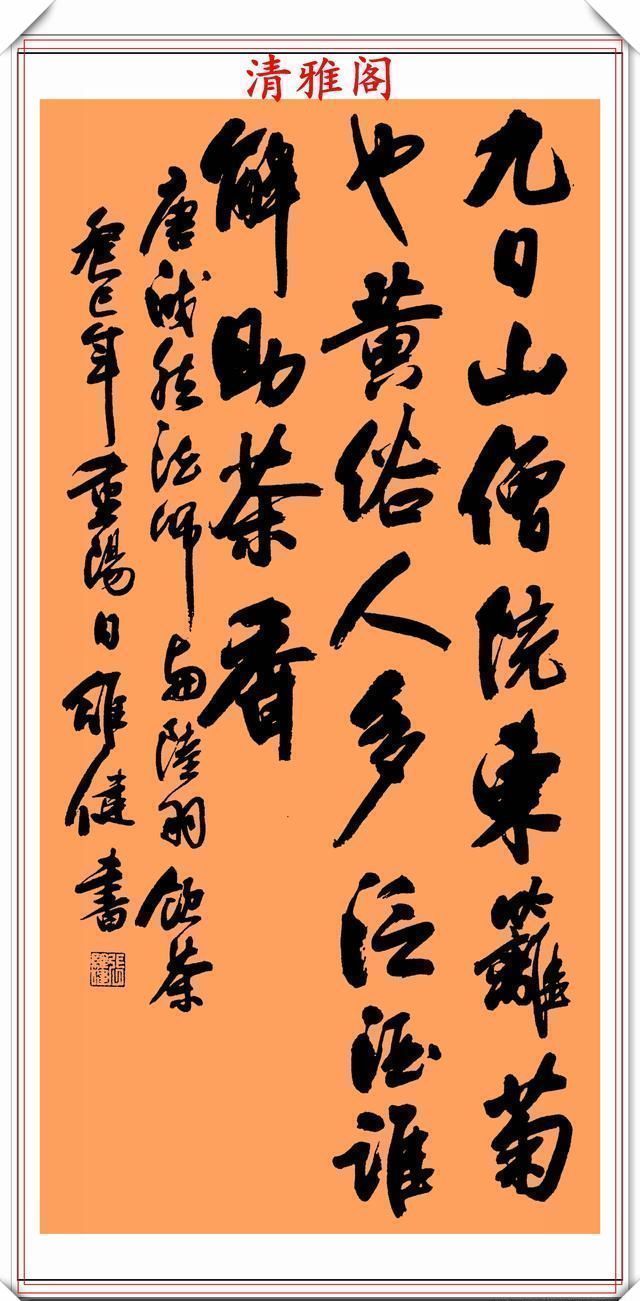 清雅阁
九日山僧院東籬菊
也黄俗人多泛酒誰
解助茶香
唐皎然法师与陸羽飲茶
癸巳年重陽日雄健書